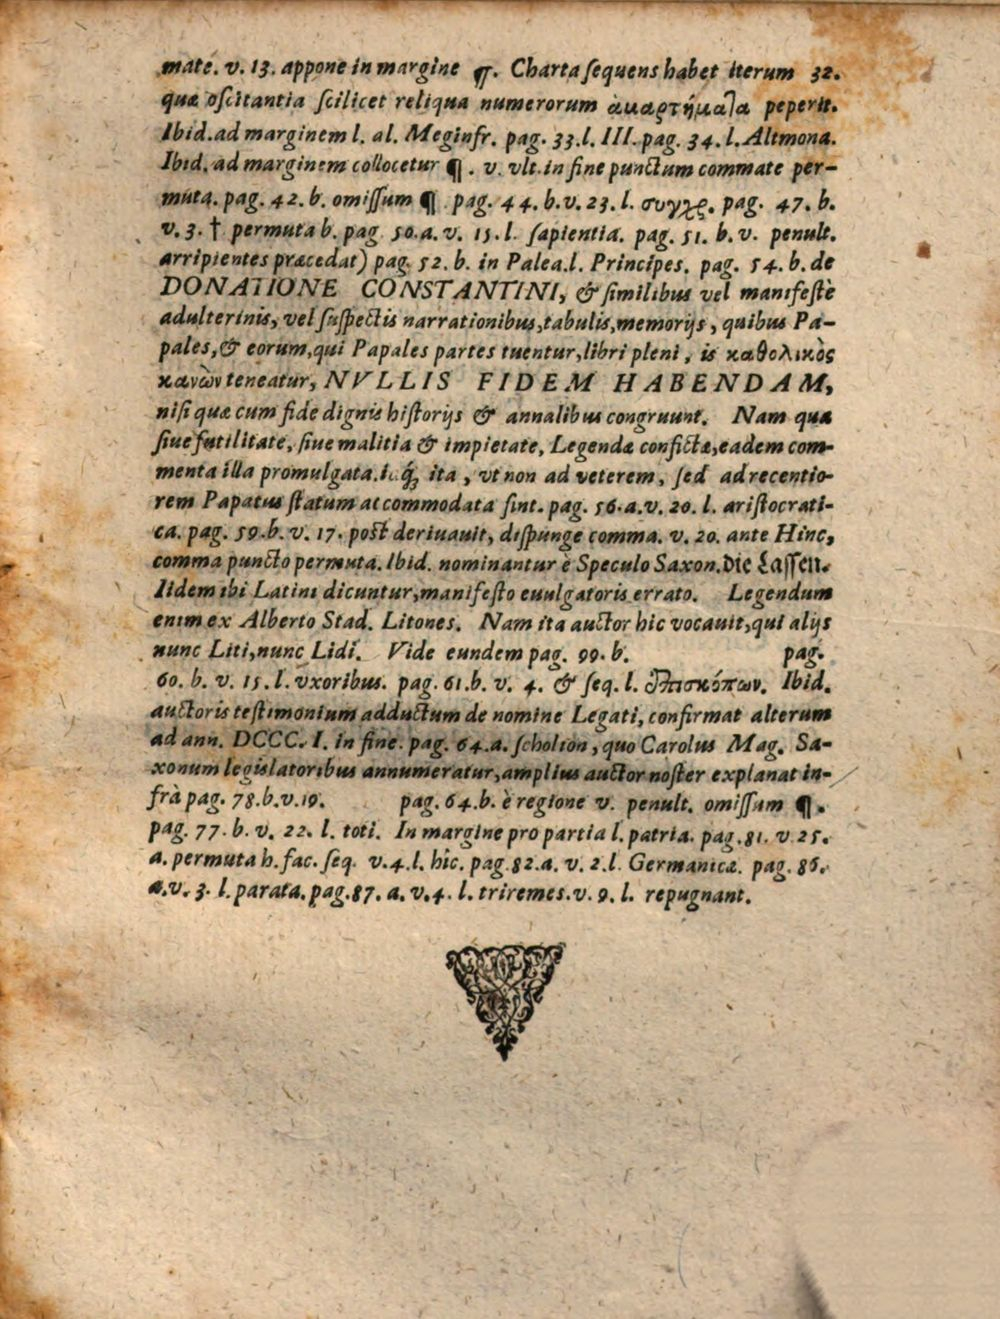 mate. v. 13. appone in margine ¶. Charta ſequens habet iterum 32.
quæ oſcitantia ſcilicet reliqua numerorum ἁμαρτήματα peperit.
Ibid. ad marginem l. al. Meginfr. pag. 33. l. III. pag. 34. l. Altmona.
Ibid. ad marginem collocetur ¶. v. vlt. in fine punctum commate per-
muta. pag. 42. b. omiſſum ¶ pag. 44. b. v. 23. l. συγχρ. pag. 47. b.
v. 3. † permuta b. pag. 50. a. v. 15. l. ſapientia. pag. 51. b. v. penult.
arripientes præcedat) pag. 52. b. in Palea. l. Principes. pag. 54. b. de
DONATIONE CONSTANTINI, & ſimilibus vel manifeſtè
adulterinis, vel ſuſpectis narrationibus, tabulis, memorijs, quibus Pa-
pales, & eorum, qui Papales partes tuentur, libri pleni, is καθολικὸς
κανὼν teneatur, NVLLIS FIDEM HABENDAM,
niſi quæ cum fide dignis hiſtorijs & annalibus congruunt. Nam quæ
ſiue futilitate, ſiue malitia & impietate, Legendæ confictæ, eadem com-
menta illa promulgata. idq́; ita, vt non ad veterem, ſed ad recentio-
rem Papatus ſtatum accommodata ſint. pag. 56. a. v. 20. l. ariſtocrati-
ca. pag. 59. b. v. 17. poſt deriuauit, diſpunge comma. v. 20. ante Hinc,
comma puncto permuta. Ibid. nominantur è Speculo Saxon. die Laſſen.
Iidem ibi Latini dicuntur, manifeſto euulgatoris errato. Legendum
enim ex Alberto Stad. Litones. Nam ita auctor hic vocauit, qui alijs
nunc Liti, nunc Lidi. Vide eundem pag. 99. b. pag.
60. b. v. 15. l. vxoribus. pag. 61. b. v. 4. & ſeq. l. ἐπισκόπων. Ibid.
auctoris teſtimonium adductum de nomine Legati, confirmat alterum
ad ann. DCCC. I. in fine. pag. 64. a. ſcholion, quo Carolus Mag. Sa-
xonum legislatoribus annumeratur, amplius auctor noſter explanat in-
frà pag. 78. b. v. 19. pag. 64. b. è regione v. penult. omiſſum ¶.
pag. 77. b. v. 22. l. toti. In margine pro partia l. patria. pag. 81. v. 25.
a. permuta h. fac. ſeq. v. 4. l. hic. pag. 82. a. v. 2. l. Germanicæ. pag. 86.
a. v. 3. l. parata. pag. 87. a. v. 4. l. triremes. v. 9. l. repugnant.